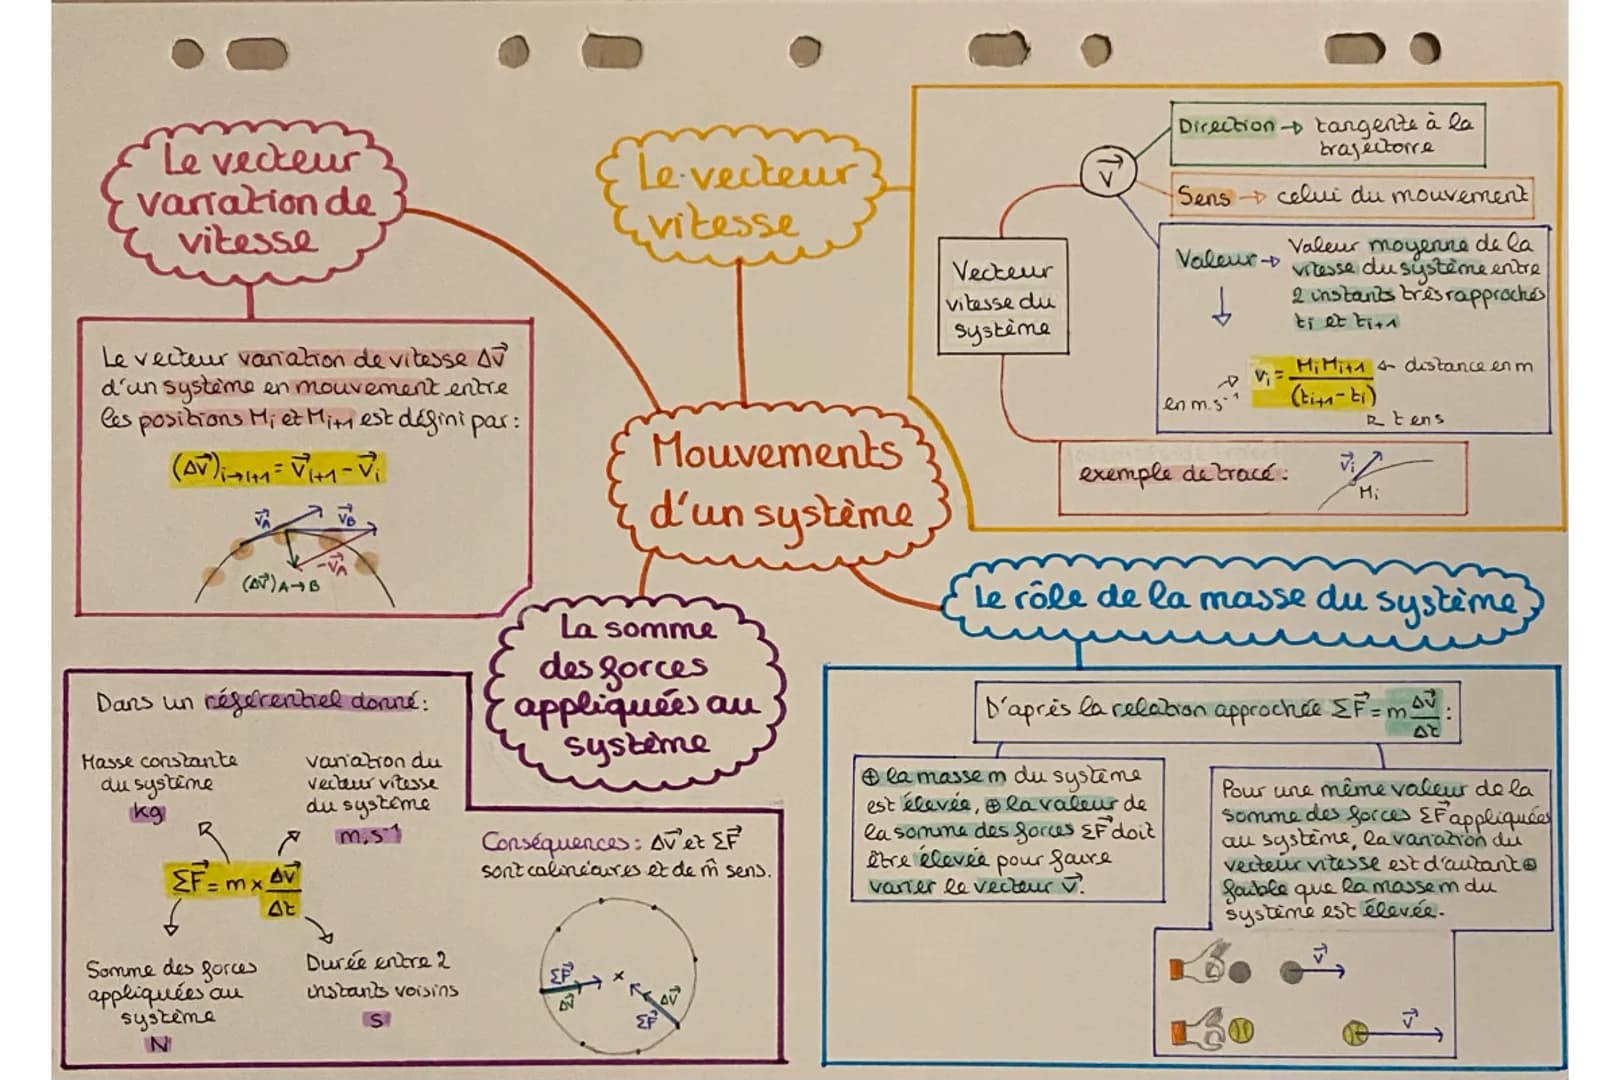 Le vecteur
variation de
vitesse
Le vecteur variation de vitesse Δv⃗
d'un système en mouvement entre
les positions Mi et Mi+1 est défini par :
(Δv⃗)i→i+1 = v⃗i+1 - v⃗i
v⃗A
v⃗B
-v⃗A
(Δv⃗)A→B
Le vecteur
vitesse
Vecteur
vitesse du
système
v⃗
Direction → tangente à la
trajectoire
Sens → celui du mouvement
Valeur → Valeur moyenne de la
vitesse du système entre
2 instants très rapprochés
ti et ti+1
vi = MiMi+1 / (ti+1 - ti)
← distance en m
en m.s⁻¹
t en s
exemple de tracé :
v⃗i
Mi
Mouvements
d'un système
La somme
des forces
appliquées au
système
Dans un référentiel donné :
Masse constante
du système
kg
variation du
vecteur vitesse
du système
m.s⁻¹
ΣF⃗ = m x Δv⃗/Δt
Somme des forces
appliquées au
système
N
Durée entre 2
instants voisins
s
Conséquences : Δv⃗ et ΣF⃗
sont colinéaires et de m̂ sens.
ΣF⃗
Δv⃗
x
Δv⃗
ΣF⃗
Le rôle de la masse du système
D'après la relation approchée ΣF⃗ = m Δv⃗/Δt :
⊕ la masse m du système
est élevée, ⊕ la valeur de
la somme des forces ΣF⃗ doit
être élevée pour faire
varier le vecteur v⃗.
Pour une même valeur de la
somme des forces ΣF⃗ appliquées
au système, la variation du
vecteur vitesse est d'autant ⊕
faible que la masse m du
système est élevée.
v⃗
v⃗